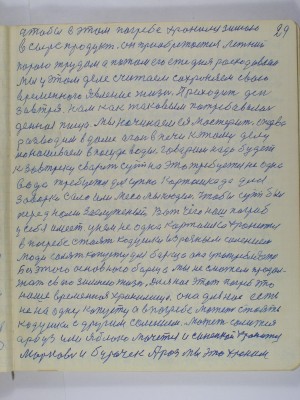 чтобы в этом погребе хранили зимою 29
в сыре продукт. он приобретается Летний
порою трудом а потом его сте дня расходовано
мы у этом деле считаем сохраняем своего
временного явления жизни. Приходит ден
завтря. нам как таковым потребовалась
денная пища. мы начинаем ся мостерит. дрова
разводим в доме огонь в печи к тому делу
наливаем в посуду воды. говорим надо будет
к завтреку сварит суп на это требуется не одна
вода требуется для супа Картошка да для
заварки сало или мясо мы кладём. чтобы суп был
перед нами заслуженый. Вот чего наш погреб
у себя имеет. у нас не одна картошка хранится
в погребе стоят кадушки с разным солением
люди солят капусту для борща она употребляется
Без этого основного борща мы не сможем продол-
жать своей зимней жизни. для нас этот погреб это
наше временное хранилище. она для нас есть
не на одну капусту а в погребе может стоять
кадушка с другим солением. может солится
арбуз или яблоко мочется и синенькой хранится
Морковь и бурачек Яроз мы это храним